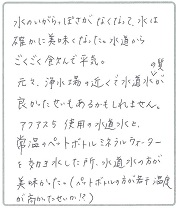 水のいがらっぽさがなくなって、水は
確かに美味くなった。水道から
ごくごく飲んで平気。
元々、浄水場の近くで水道水が
の質
良かったせいもあるかもしれません。
アクアス5 使用の水道水と、
常温のペットボトルミネラルウォーター
を効き水した所、水道水の方が
美味かった。(ペットボトルの方が若干温度
が高かったせいか!?)